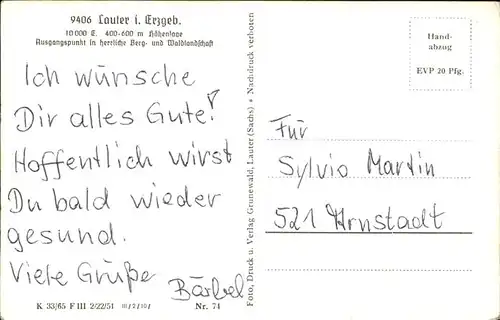 9406 Lauter i. Erzgeb.
10 000 E. 400-600 m Höhenlage
Ausgangspunkt in herrliche Berg- und Waldlandschaft
Ich wünsche
Dir alles Gute!
Hoffentlich wirst
Du bald wieder
gesund.
Viele Grüße
Bärbel
K 33/65 F III 2/22/51 III/2/10/ Nr. 74
Foto, Druck u. Verlag Grunewald, Lauter (Sachs) • Nachdruck verboten
Hand-
abzug
EVP 20 Pfg.
Für
Sylvio Martin
521 Arnstadt